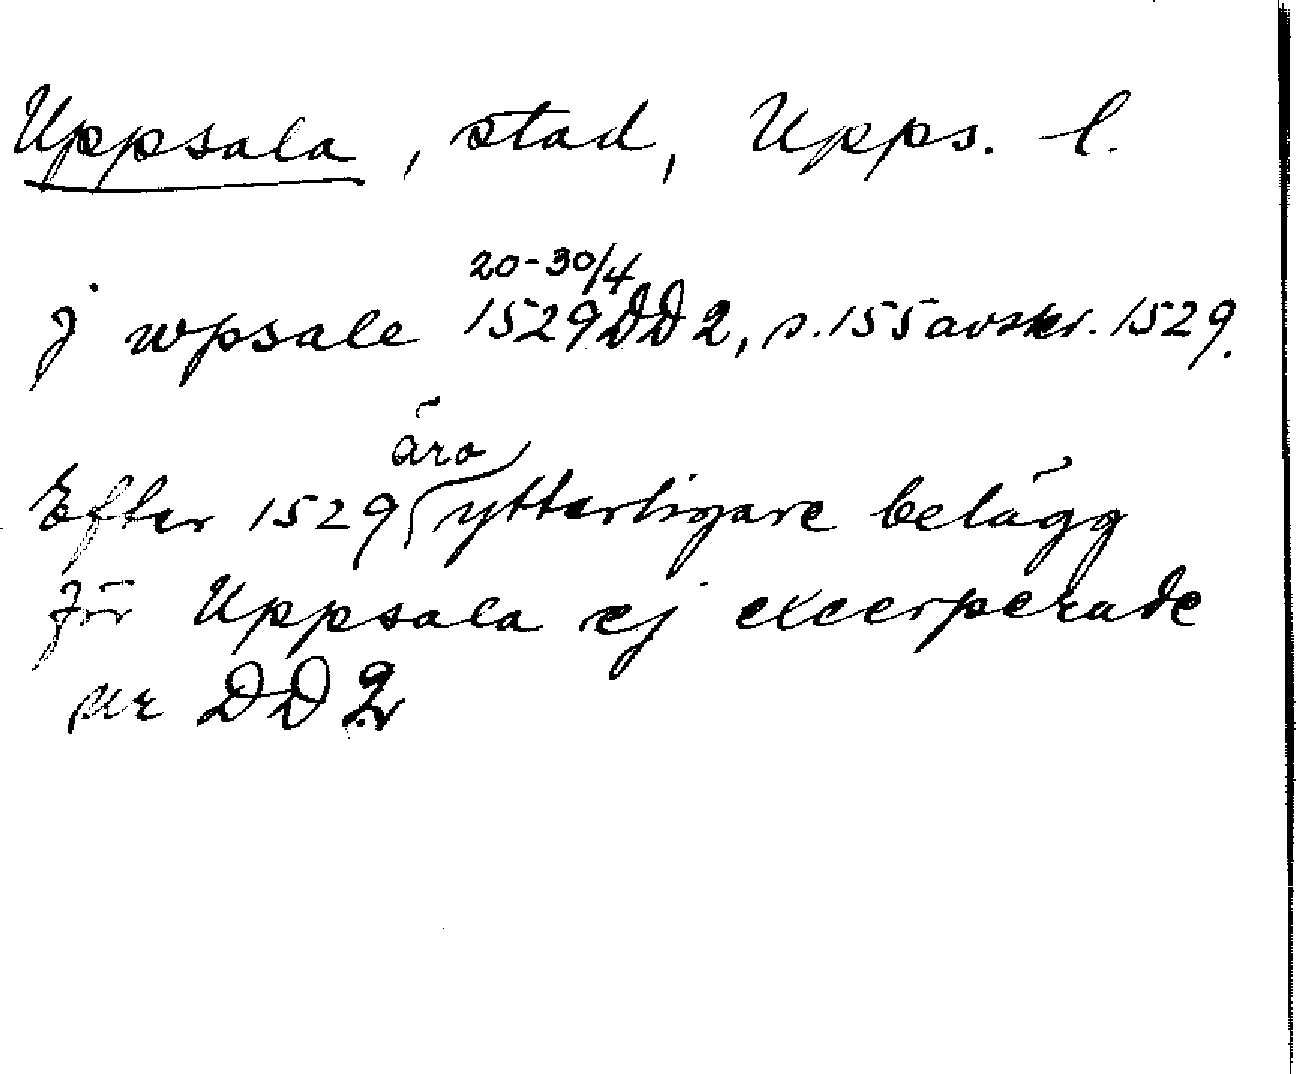 Uppsala, stad, Upps. l.
20-30/4
j wpsale 1529 DD2, s. 155 avskr. 1529.
äro
Efter 1529 ytterligare belägg
för Uppsala ej excerperade
ur DD2